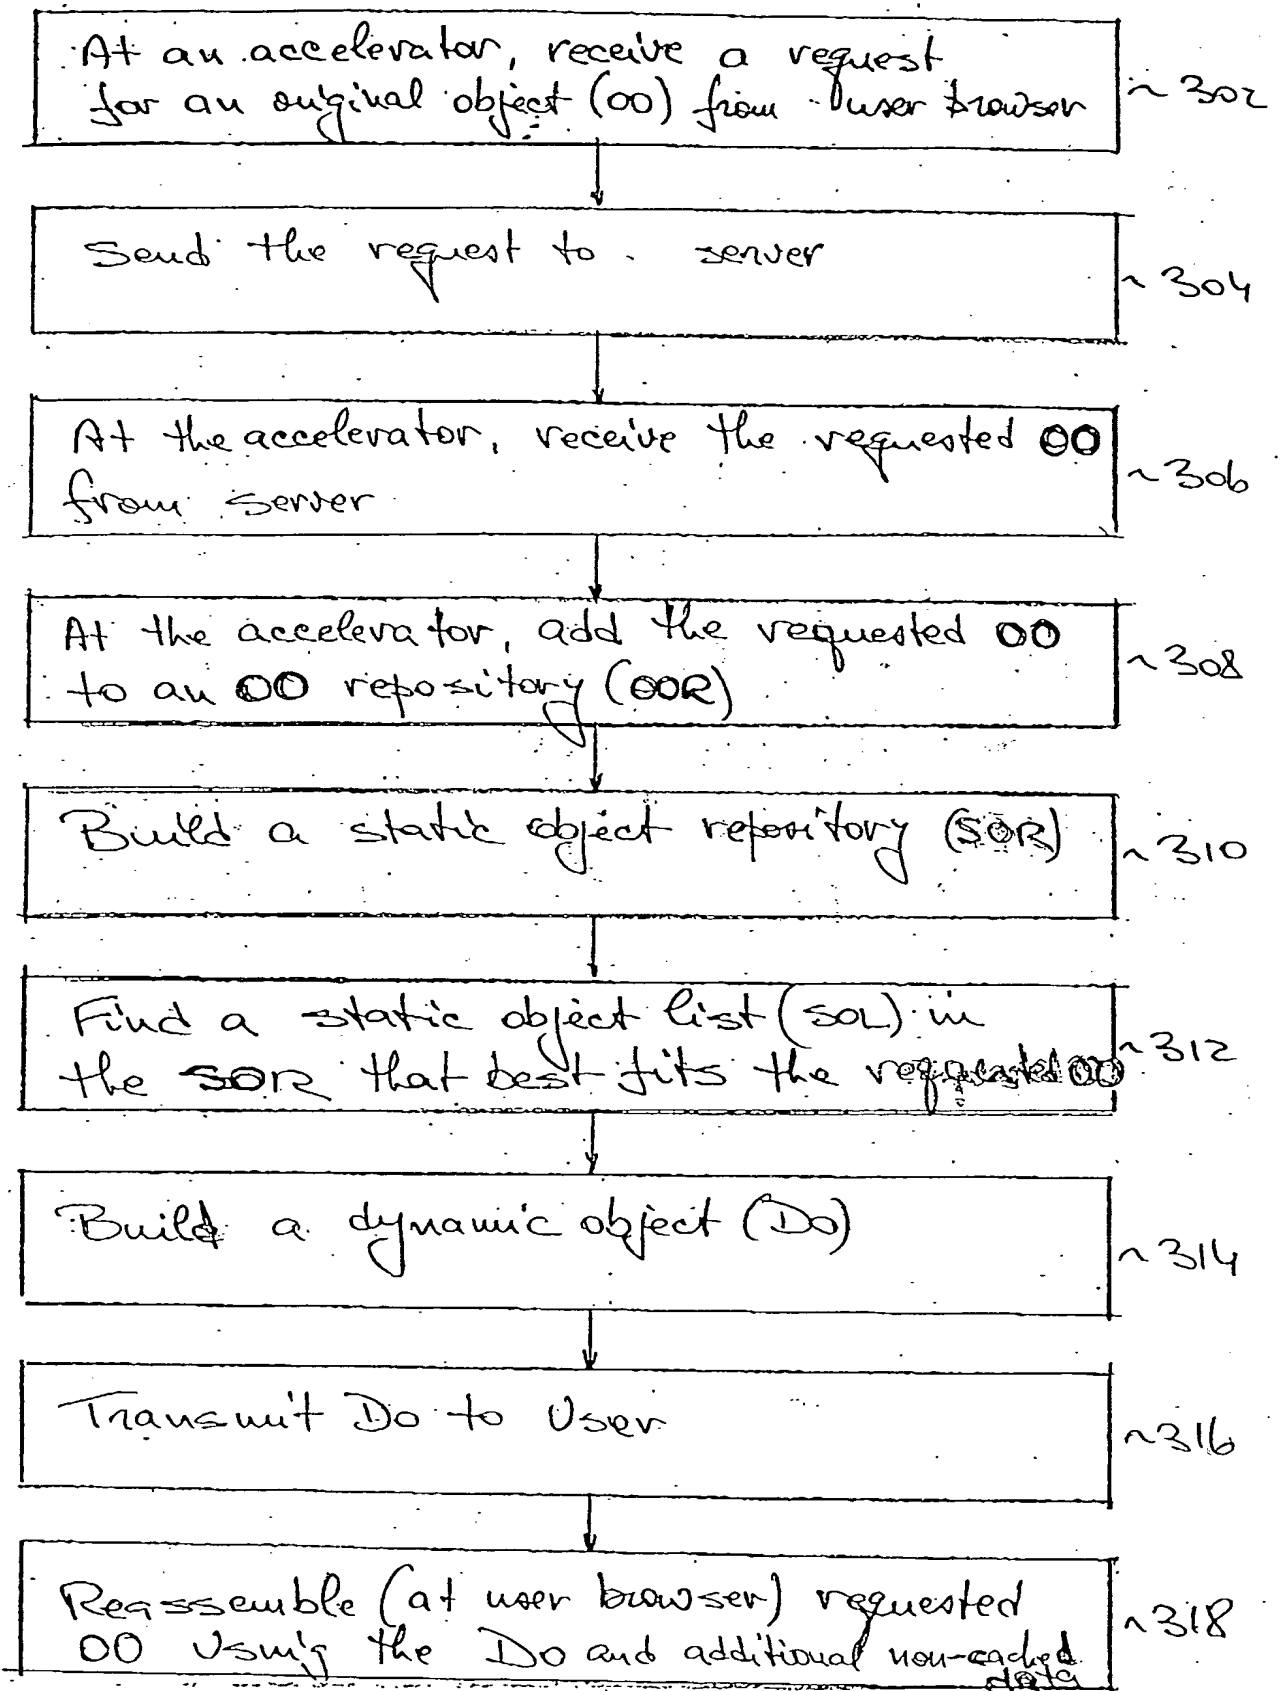 At an accelerator, receive a request
for an original object (OO) from user browser
~ 302
Send the request to server
~ 304
At the accelerator, receive the requested OO
from server
~ 306
At the accelerator, add the requested OO
to an OO repository (OOR)
~ 308
Build a static object repository (SOR)
~ 310
Find a static object list (SOL) in
the SOR that best fits the requested OO
~ 312
Build a dynamic object (DO)
~ 314
Transmit DO to User
~ 316
Reassemble (at user browser) requested
OO Using the DO and additional non-cached
data
~ 318